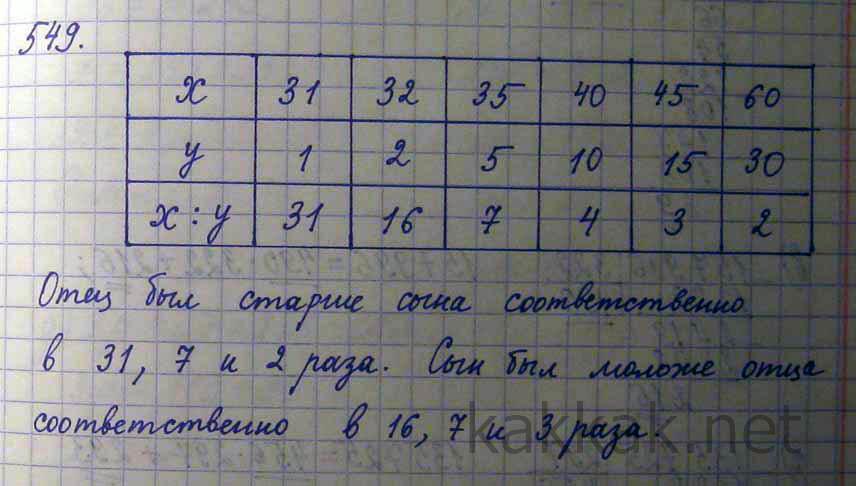 549.
x 31 32 35 40 45 60
y 1 2 5 10 15 30
x : y 31 16 7 4 3 2
Отец был старше сына соответственно
в 31, 7 и 2 раза. Сын был моложе отца
соответственно в 16, 7 и 3 раза.
kakkak.net